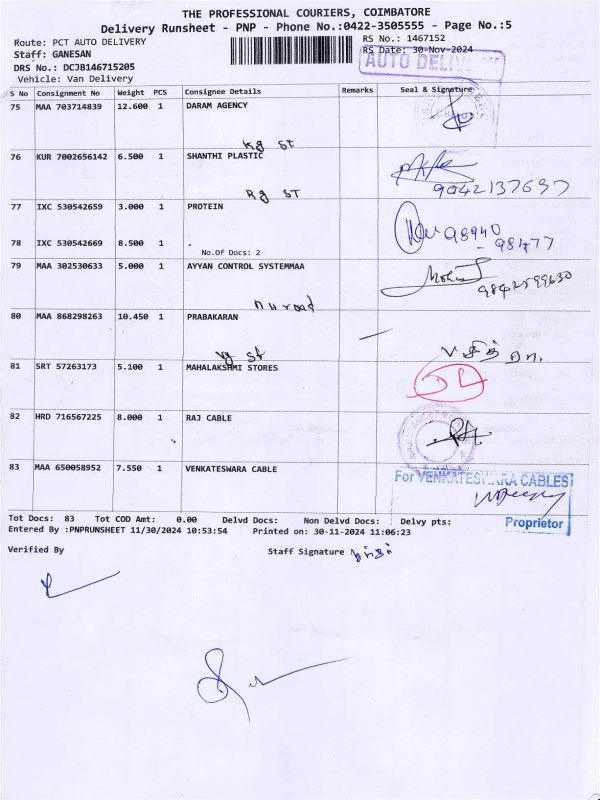 THE PROFESSIONAL COURIERS, COIMBATORE
Delivery Runsheet - PNP - Phone No.:0422-3505555 - Page No.:5
Route: PCT AUTO DELIVERY RS No.: 1467152
Staff: GANESAN RS Date: 30-Nov-2024
AUTO DELIVERY
DRS No.: DCJB146715205
Vehicle: Van Delivery
S No Consignment No Weight PCS Consignee Details Remarks Seal & Signature
75 MAA 703714839 12.600 1 DARAM AGENCY
Kg St
76 KUR 7002656142 6.500 1 SHANTHI PLASTIC
9042137697
Rg ST
77 IXC 530542659 3.000 1 PROTEIN
98940
78 IXC 530542669 8.500 1
- 98477
No.Of Docs: 2
79 MAA 302530633 5.000 1 AYYAN CONTROL SYSTEMMAA
80 MAA 868298263 10.450 1 PRABAKARAN
81 SRT 57263173 5.100 1 MAHALAKSHMI STORES
82 HRD 716567225 8.000 1 RAJ CABLE
83 MAA 650058952 7.550 1 VENKATESWARA CABLE
For VENKATESWARA CABLES
Proprietor
Tot Docs: 83 Tot COD Amt: 0.00 Delvd Docs: Non Delvd Docs: Delvy pts:
Entered By :PNPRUNSHEET 11/30/2024 10:53:54 Printed on: 30-11-2024 11:06:23
Verified By Staff Signature